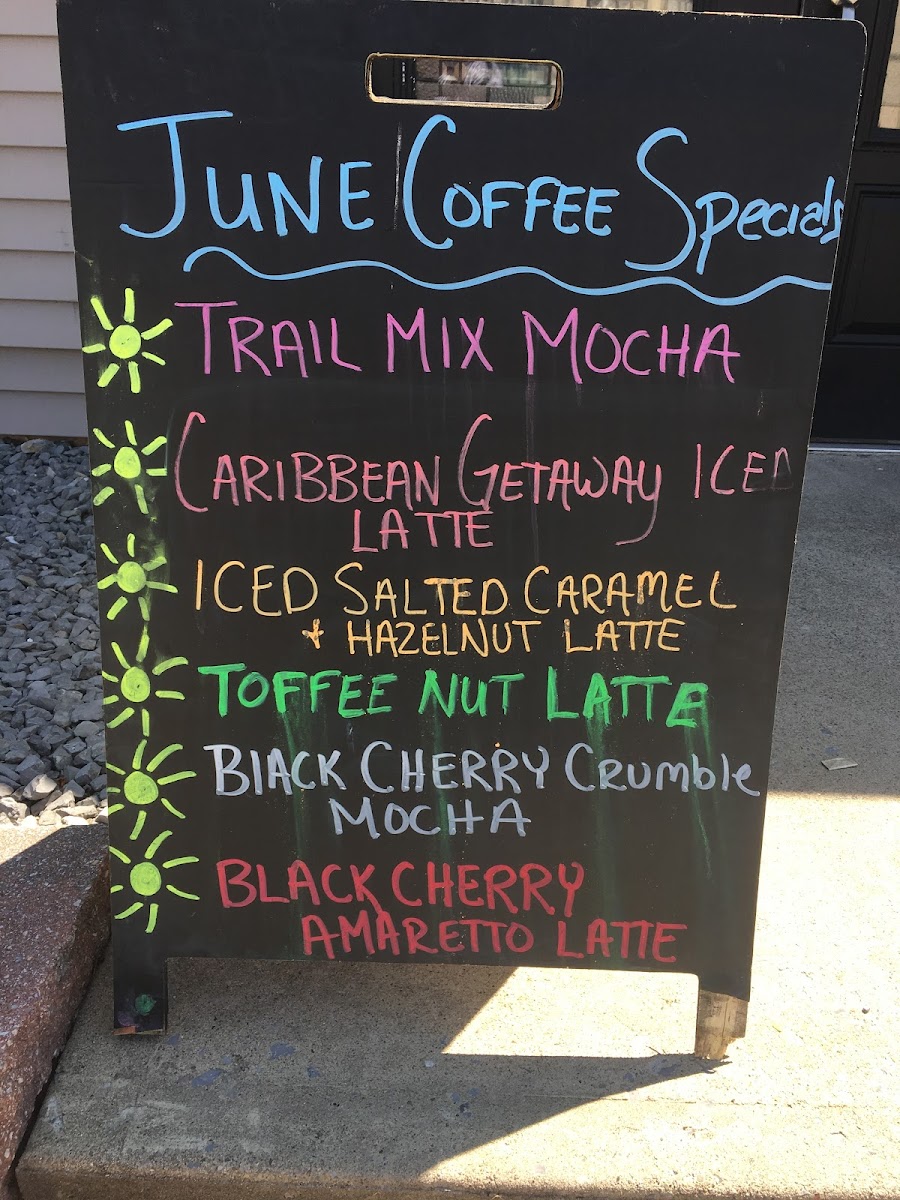 JUNE COFFEE Specials
TRAIL MIX MOCHA
CARIBBEAN GETAWAY ICED
LATTE
ICED SALTED CARAMEL
+ HAZELNUT LATTE
TOFFEE NUT LATTE
BlACK CHERRY Crumble
MOCHA
BLACK CHERRY
AMARETTO LATTE